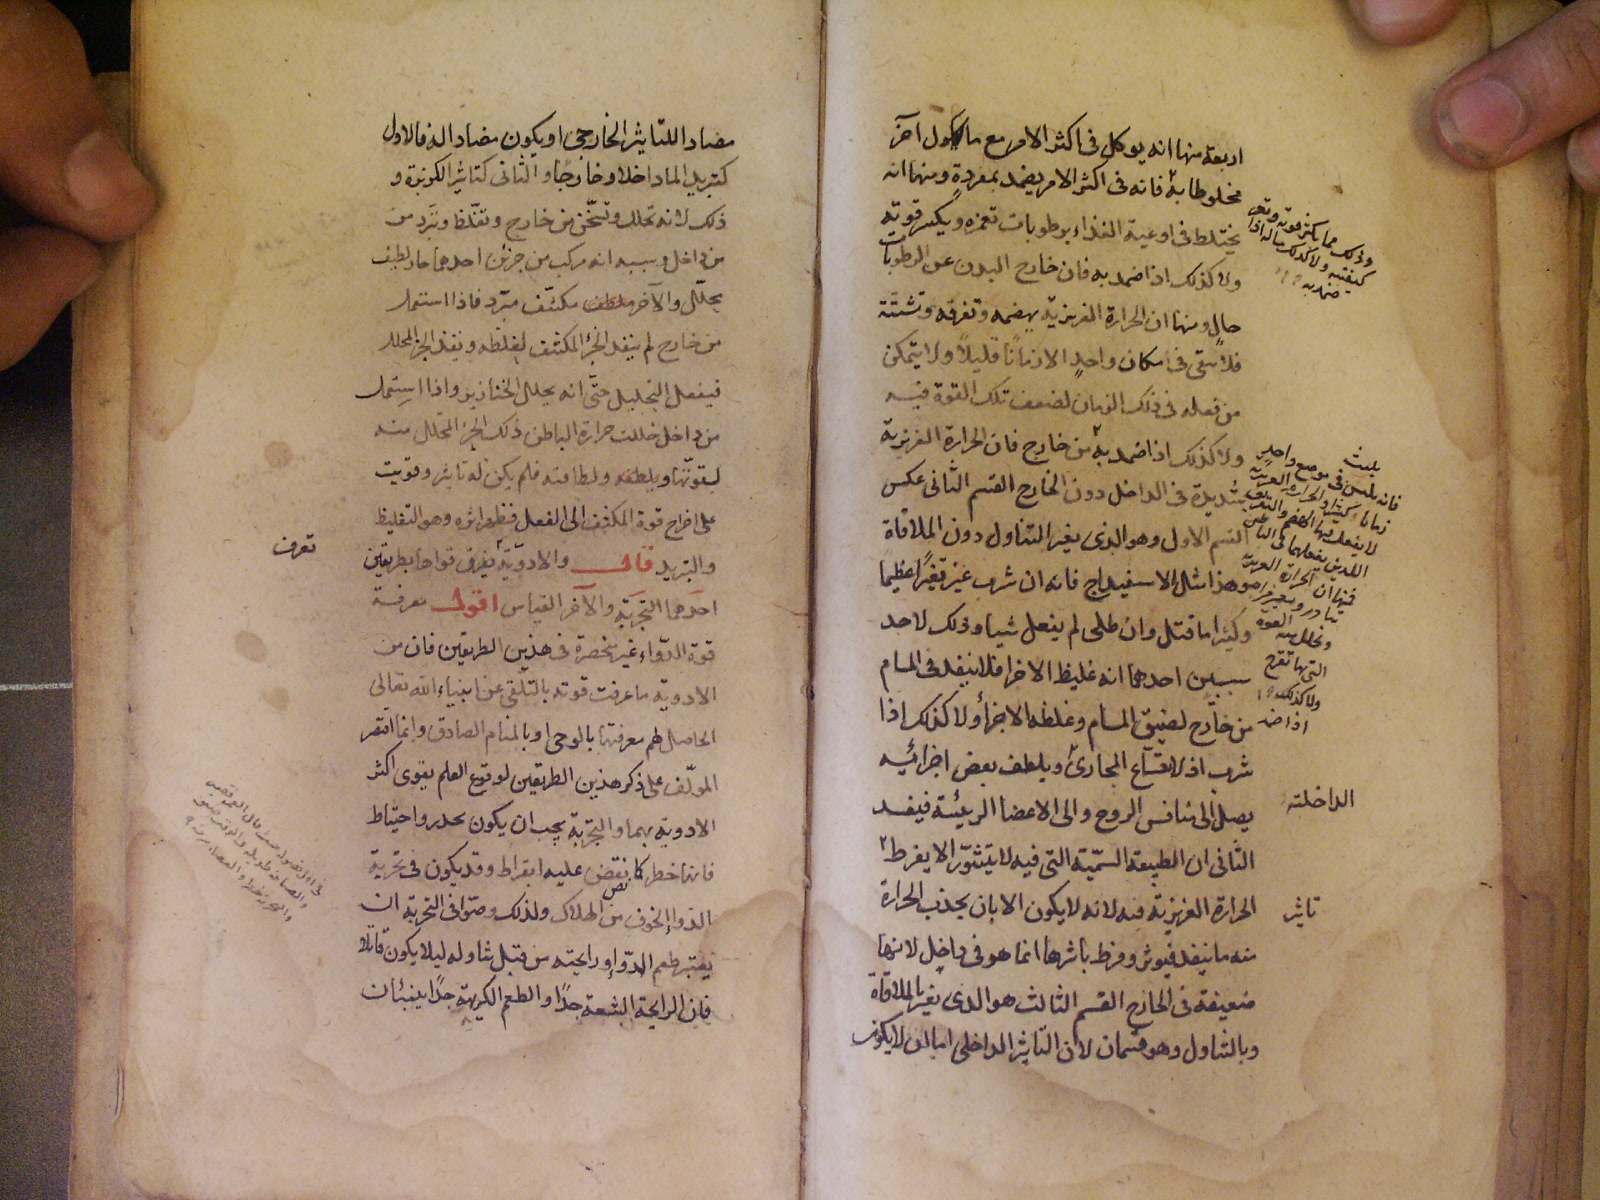 اربعة منها انه يوكل فى اكثر الامر مع ماكول آخر
مخلوطا به فانه فى اكثر الامر يضمد بمفرده ومنها انه
يختلط فى اوعية الغذاء برطوبات تغمره ويكسر قوته
ولا كذلك اذا ضمد به فان خارج البدن عن الرطوبات
خالٍ ومنها ان الحرارة الغريزية يهضمه وتفرقه وتشتته
فلا يبقى فى مكان واحدٍ الا زمانًا قليلاً ولا يتمكن
من فعله فى ذلك الزمان لضعف تلك القوة فيه
ولا كذلك اذا ضمد به من خارج فان الحرارة الغريزية
شديدة فى الداخل دون الخارج القسم الثانى عكس
القسم الاول وهو الذى يغير التناول دون الملاقاة
وهذا مثل الاسفيداج فانه ان شرب غير تغيرًا عظيما
وكثيرا ما قتل وان طلى لم يفعل شيا وذلك لاحد
سببين احدهما انه غليظ الاجزا فلا ينفد فى المسام
من خارج لضيق المسام وغلظه الاجزاء ولا كذلك اذا
شرب اذ لاتساع المجارى ويلطف بعض اجزائه
يصل الى منافس الروح والى الاعضا الرئيسة فيفسد
الثانى ان الطبيعة السمّية التى فيه لا يتثوّر الا بفرط
الحرارة الغريزية فيه لانه لا يكون الا بان يجذب الحرارة
منه ما ينفد فيوثر وفرط تاثيرها انما هو فى داخل لانها
ضعيفة فى الخارج القسم الثالث هو الذى يغير بالملاقاة
وبالتناول وهو قسمان لان التاثير الداخلى اما ان لا يكون
وذلك مما يكسر قوته
كيفيته ولا كذلك حاله اذا
ضمد به
يلبث
فانه يلبس فى موضع واحدٍ
ولا كذلك
اذا ضمد
الداخلته
تاثير
مضادا للتاثير الخارجى او يكون مضادا له فالاول
كتبريد الما داخلا وخارجًا والثانى كتاثير الكزبرة و
ذلك لانه تحلل وتسخّن من خارج وتغلّظ وتبرّد من
من داخل وسببه انه مركب من جزئين احدهما حار لطيف
يحلّل والآخر مكثّف مبرّد فاذا استعمل
من خارج لم ينفد الجزء المكثف لغلظه ونفد الجز المحلل
فيفعل التحليل حتّى انه يحلل الخنازير واذا استعمل
من داخل حللت حرارة الباطن ذلك الجز المحلل منه
لقوتها ولطافته فلم يكن له تاثير وقويت
على اخراج قوة المكثف الى الفعل فيظهر اثره وهو التغليظ
والتبريد قال والادوية يعرف قواها بطريقين
احدهما التجربة والآخر القياس اقول معرفة
قوة الدّواء غير منحصرة فى هذين الطريقين فان من
الادوية ما عرفت قوته بالتلقى عن انبياء الله تعالى
الحاصل لهم معرفتها بالوحى او بالمنام الصادق وانما اقتصر
المولّف على ذكر هذين الطريقين لوقوع العلم بقوى اكثر
الادوية بهما والتجربة يجب ان يكون بحذر واحتياط
فانها خطر كما نص عليه ابقراط وقد يكون فى تجربة
الدّوا الخوف من الهلاك ولذلك وصّوا فى التجربة ان
يعتبر طعم الدّوا ورايحته من قبل تناوله ليلا يكون قاتلا
فان الرايحة البشعة جدًا والطعم الكريهة جدًا ينبئان
تعرف